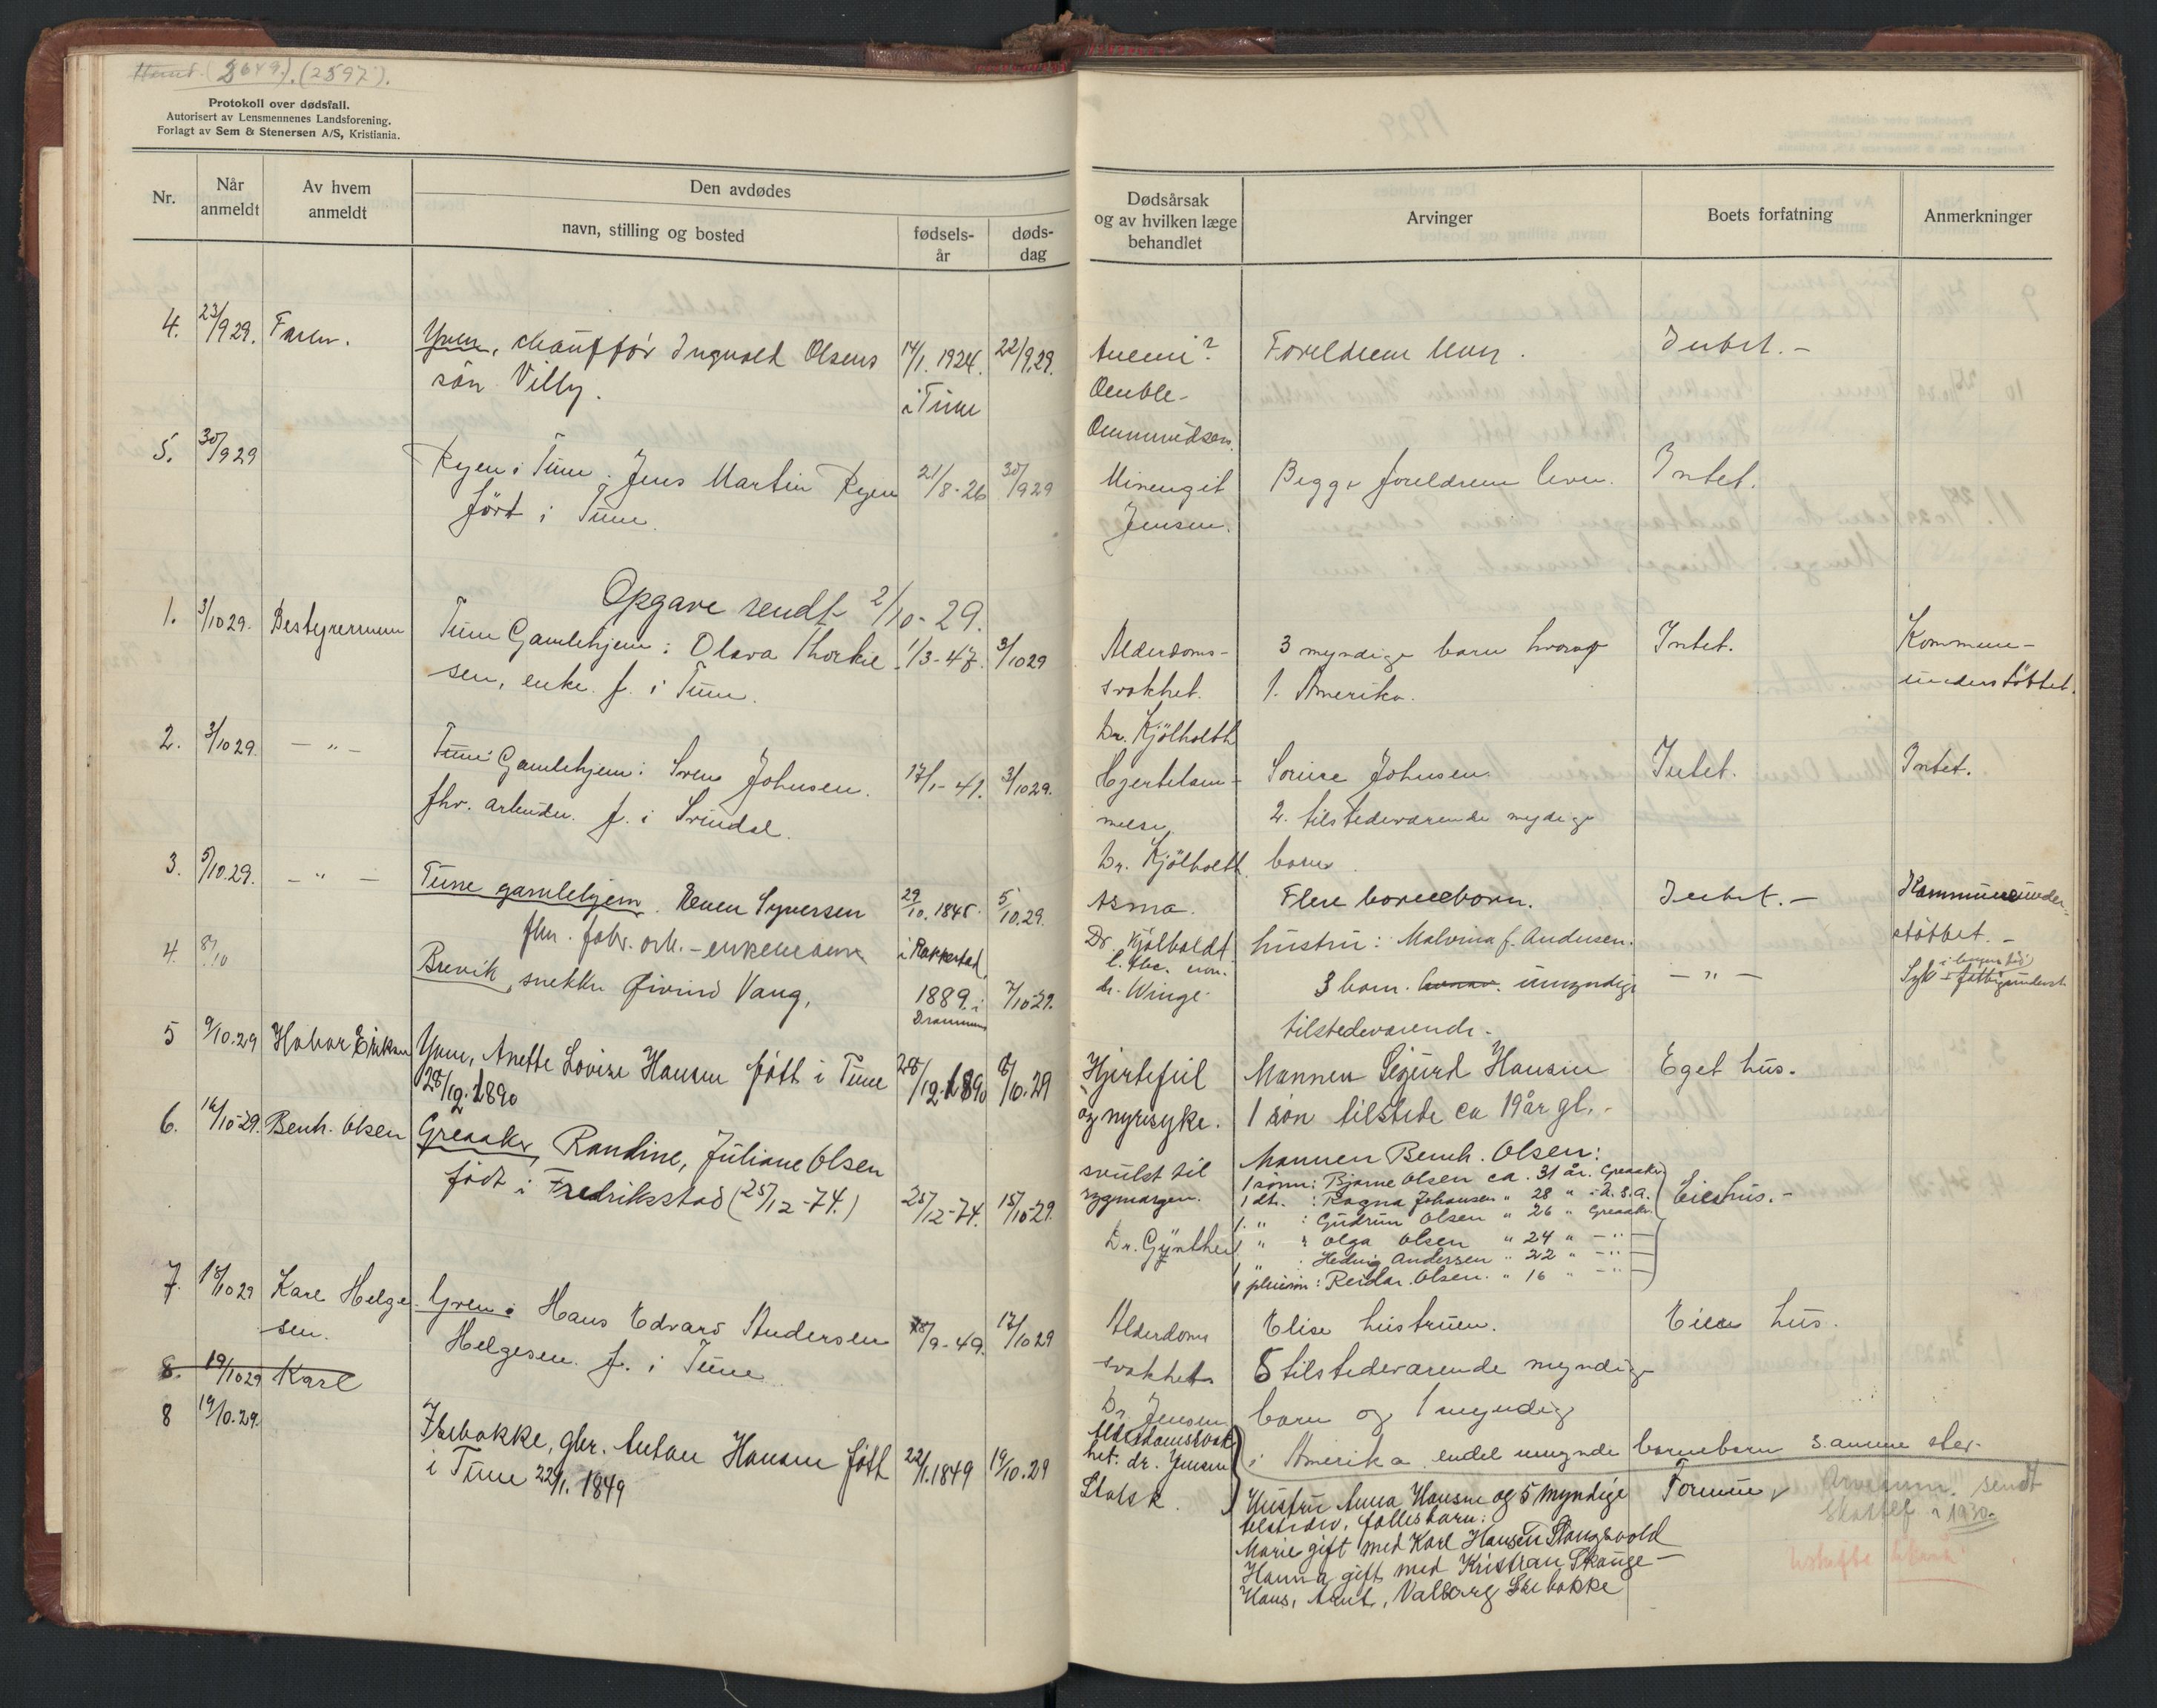 (2649.) (2597).
Protokoll over dødsfall.
Autorisert av Lensmennenes Landsforening.
Forlagt av Sem & Stenersen A/S, Kristiania.
Nr.
Når anmeldt
Av hvem anmeldt
Den avdødes
navn, stilling og bosted
fødsels-år
døds-dag
4. 23/9 29. Faren. Yven, chauffør Ingvald Olsens 14/1. 1924. 22/9.29.
søn Villy. i Tune
5. 30/9 29 Ryen i Tune. Jens Martin Ryen 21/8-26 30/9 29
født i Tune.
Opgave sendt 2/10-29.
1. 3/10 29. Bestyrerinnen Tune Gamlehjem: Olava Thorkil- 1/3-47. 3/10 29
sen, enke. f. i Tune.
2. 3/10 29. — " — Tune Gamlehjem: Sven Johnsen. 17/1-41. 3/10 29.
fhv. arbeider. f. i Svindal.
3. 5/10.29. — " — Tune gamlehjem. Even Syversen 29/10.1845. 5/10.29.
fhv. fabr. arb. - enkemann i Rakkestad.
4. 8/10 Brevik, snekker Øivind Vang, 1889. i 7/10-29.
Drammen
5 9/10.29 Håvar Eriksen Yven, Anette Lovise Hansen født i Tune 28/12.1890 8/10.29
28/12.1890
6. 16/10-29. Bernh. Olsen Greaaker, Randine, Juliane Olsen
født i Fredriksstad (25/12-74.) 25/12-74. 15/10-29.
7. 18/10 29 Karl Helge- Yven: Hans Edvard Andersen 18/9-49. 17/10 29
sen. Helgesen. f. i Tune
8. 19/10 29 Karl
8 19/10.29. Trebakke, gbr. Anton Hansen født 22/1.1849 19/10.29
i Tune 22/1.1849
Dødsårsak
og av hvilken læge
behandlet
Arvinger
Boets forfatning
Anmerkninger
Anemi? Foreldrene lever. Intet. -
Oenble-
Ommundsen
Miningit Begge foreldrene lever. Intet.
Jensen.
Alderdoms- 3 myndige barn hvorav Intet. Kommune-
svakhet. 1. Amerika. understøttet.
Dr. Kjølholdt
Hjertelam- Lovise Johnsen. Intet. Intet.
melse. 2. tilstedeværende mydige
Dr. Kjølholdt. barn
Asma. Flere barnebarn. Intet. - Kommuneunder-
Dr. Kjølholdt hustru: Malvina f. Andersen. støttet. -
dr. Winge. 3 barn. hvorav umyndige — " —
tilstedeværende.
Hjertefeil Mannen Sigurd Hansen Eget hus.
og nyresyke. 1 søn tilstede ca 19 år gl. -
svulst til Mannen Bernh. Olsen:
rygmargen. 1 sønn: Bjarne Olsen ca. 31 år. Greaaker
1 dtr. : Ragna Johansen " 28 " i U.S.A. Eiet hus. -
1. " : Gudrun Olsen " 26 " Greaaker.
Dr. Günther 1 " : Olga Olsen " 24 " — " —
1 " : Hedvig Andersen " 22 " — " —
1 pleiesøn: Reidar Olsen. " 16 " — " —
Alderdoms Elise hustruen. Eier hus.
svakhet 5 tilstedeværende myndige
Dr. Jensen barn og 1 myndig
Alderdomssvak- i Amerika endel umynde barnebarn samme sted.
het. dr. Jensen
Statsk. Hustru Anna Hansen og 5 myndige Formue. sendt
tilstedev. fællesbarn: 1930.
Marie gift med Karl Hansen Stangsvold
Hanna gift med Kristian Skauge -
Hans, Arnt, Valborg Trebakke